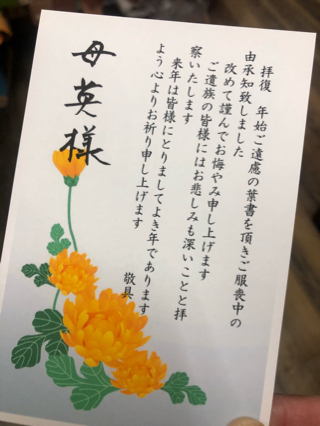 拝復　年始ご遠慮の葉書を頂きご服喪中の
由承知致しました
改めて謹んでお悔やみ申し上げます
ご遺族の皆様にはお悲しみも深いことと拝
察いたします
来年は皆様にとりましてよき年であります
よう心よりお祈り申し上げます
敬具
母英様